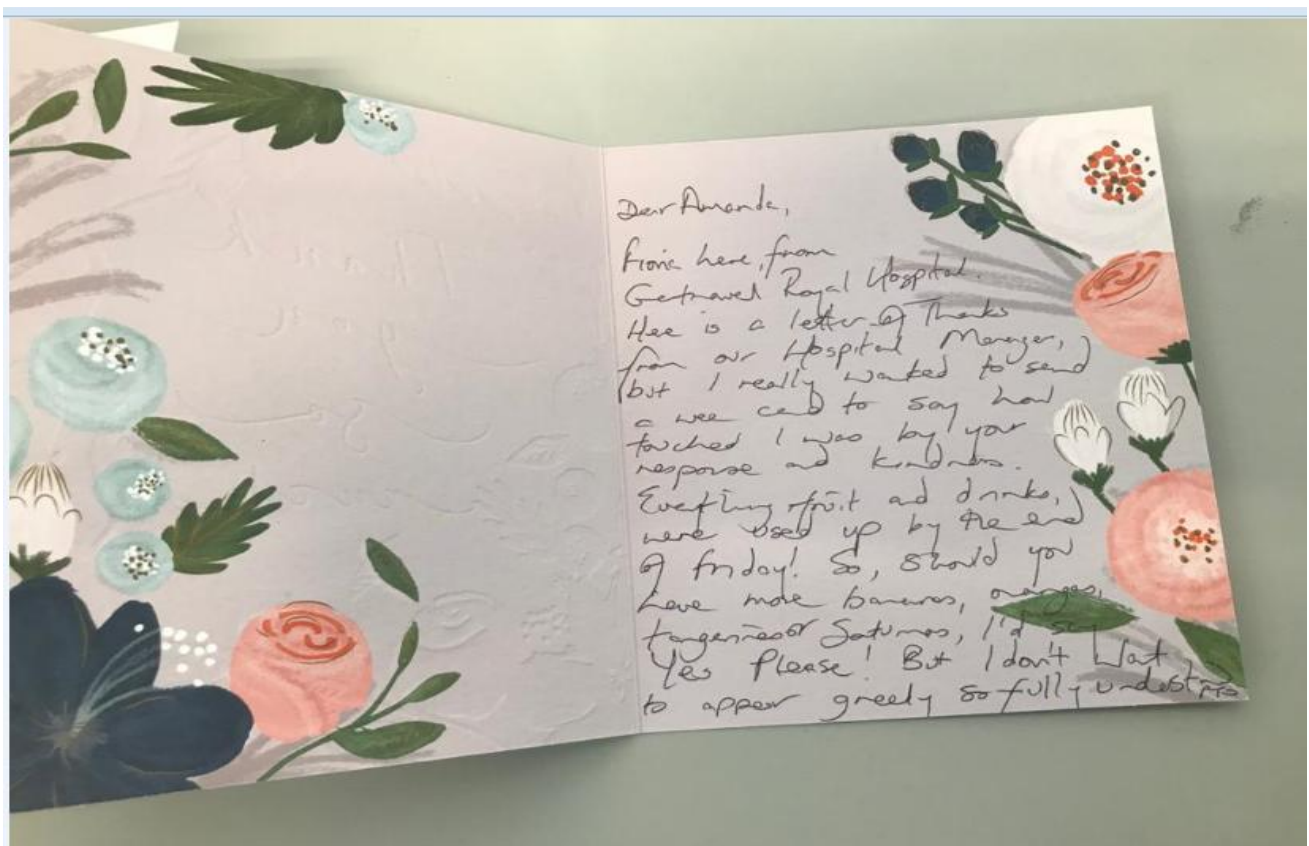 Thank
you
so
Dear Amanda,
Fiona here, from
Gartnavel Royal Hospital.
Here is a letter of Thanks
from our Hospital Manager,
but I really wanted to send
a wee card to say how
touched I was by your
response and kindness.
Everything, fruit and drinks,
were used up by the end
of Friday! So, should you
have more bananas, oranges,
tangerines or Satsumas, I'd say
Yes Please! But I don't want
to appear greedy so fully understand